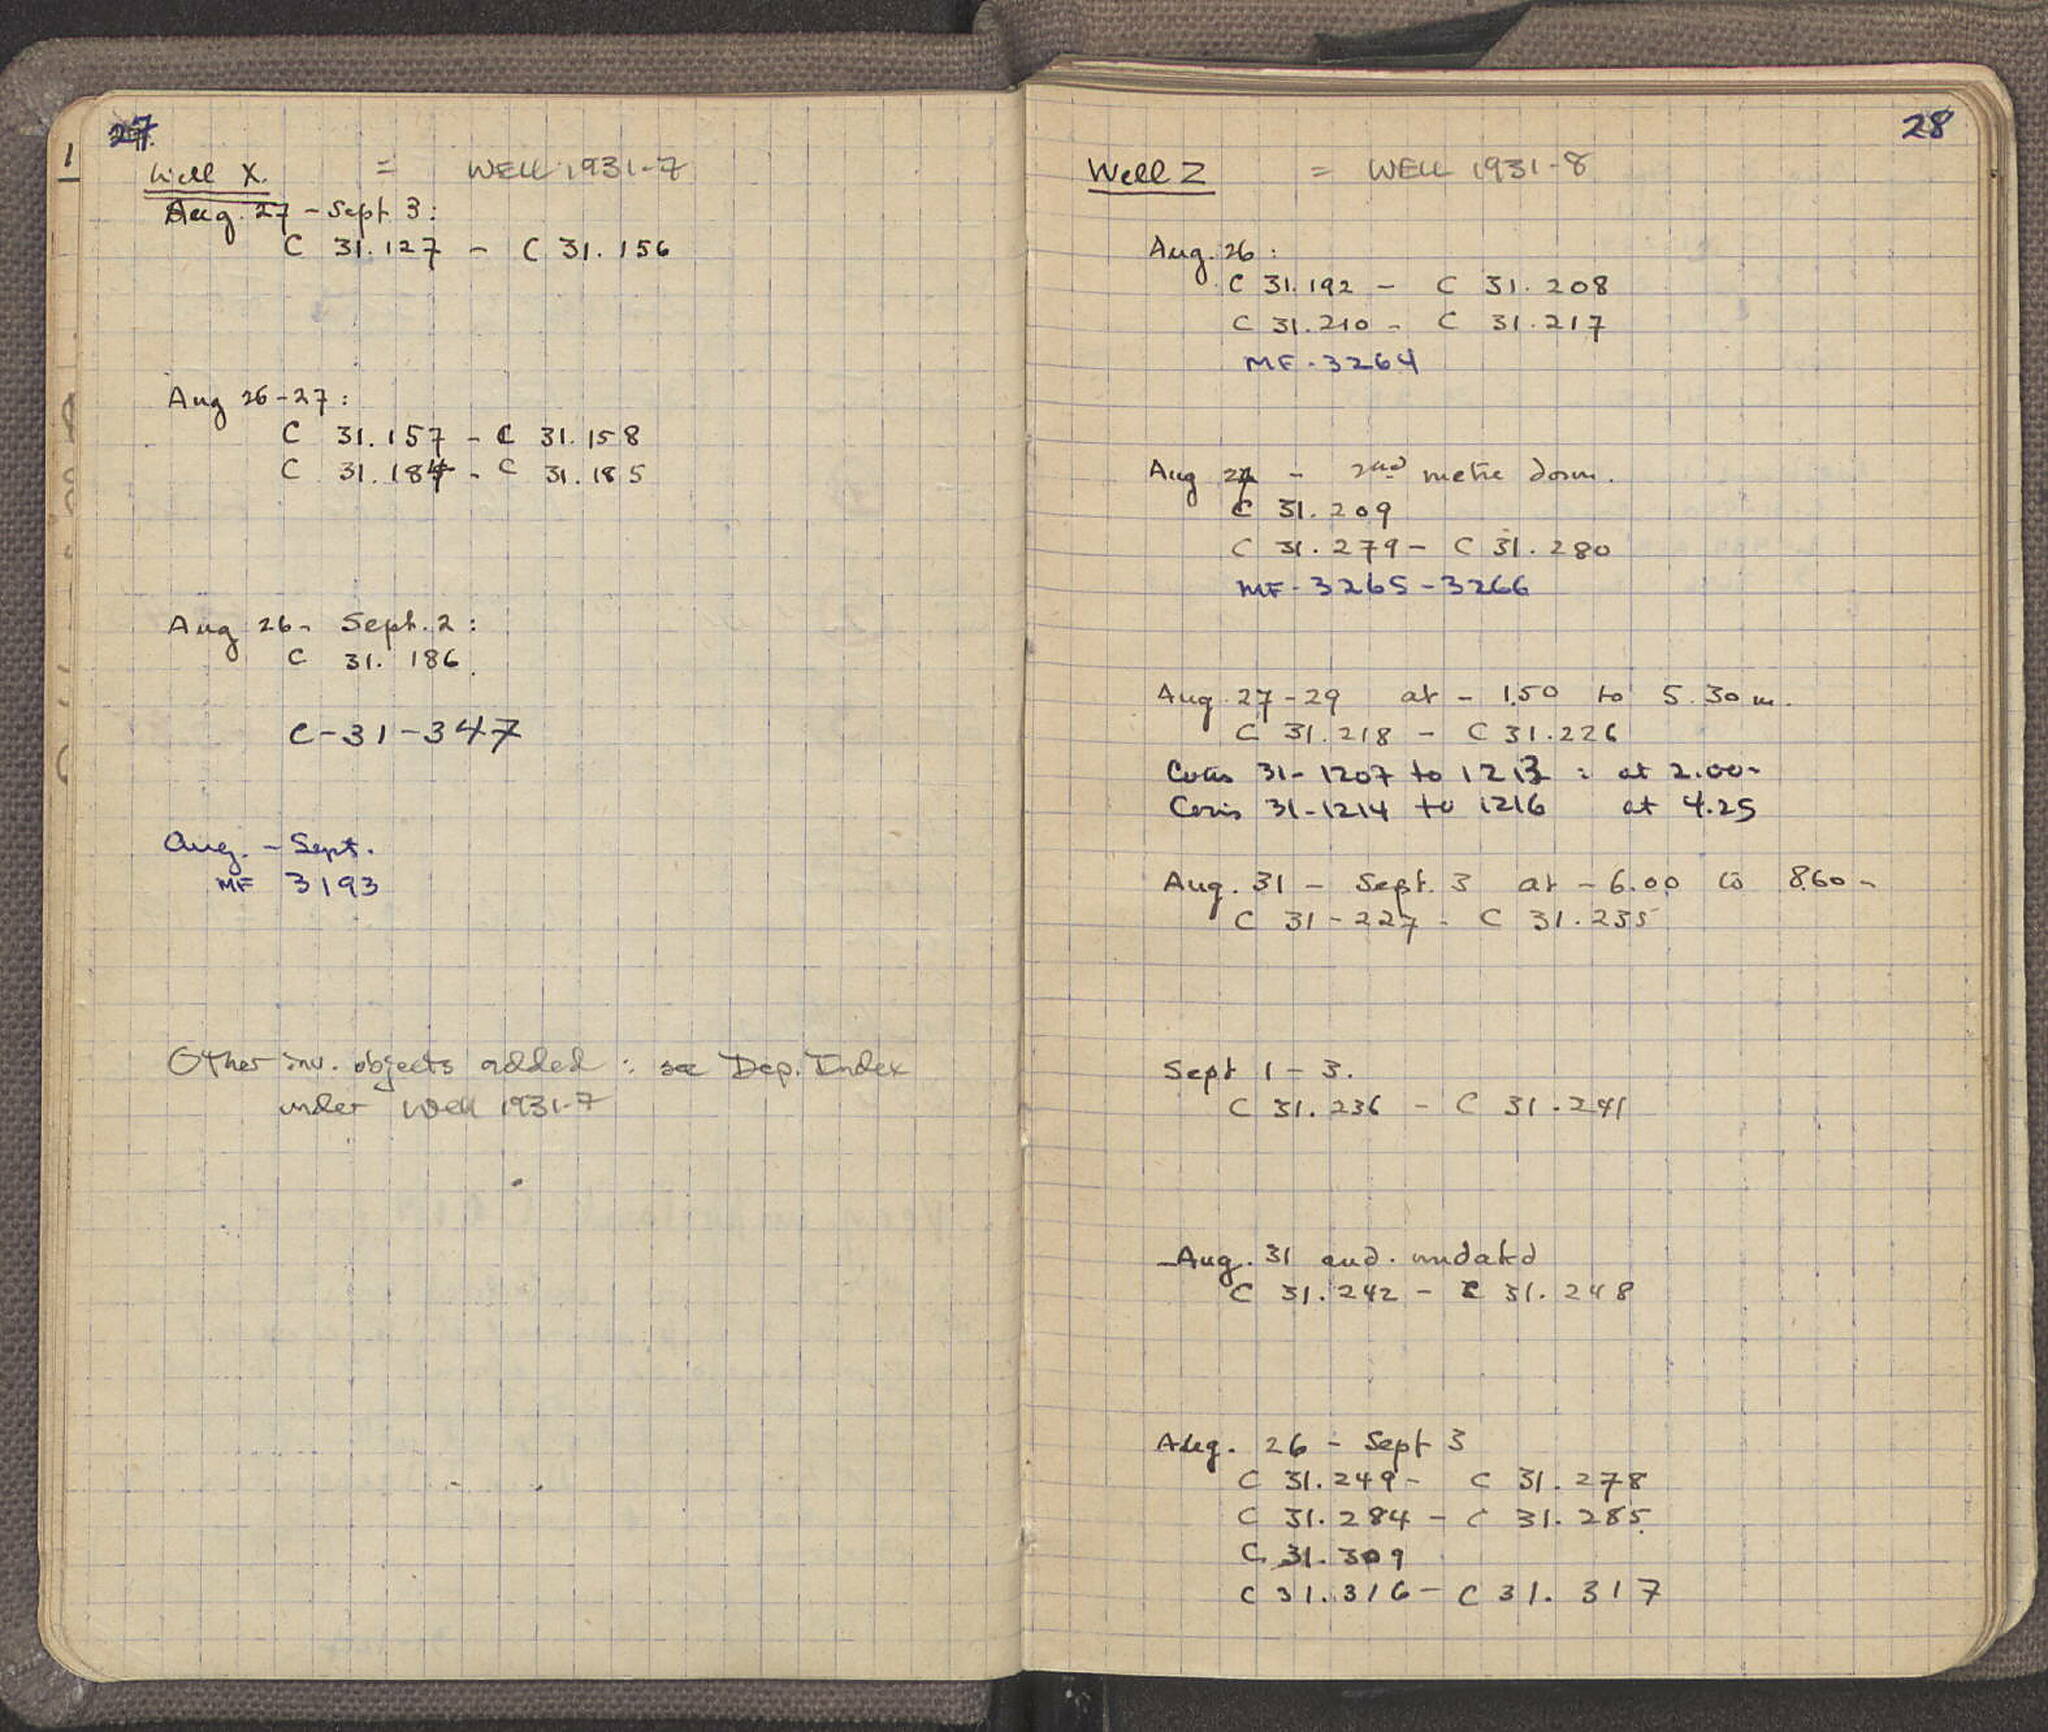 27
Well X. = WELL 1931-7
Aug. 27 - Sept 3:
C 31.127 - C 31.156
Aug 26-27:
C 31.157 - C 31.158
C 31.184 - C 31.185
Aug 26 - Sept. 2:
C 31. 186.
C-31-347
Aug. - Sept.
MF 3193
Other inv. objects added: see Dep. Index
under Well 1931-7
28
Well Z = WELL 1931-8
Aug. 26:
C 31.192 - C 31.208
C 31.210 - C 31.217
MF-3264
Aug 27 - 2nd metre down.
C 31.209
C 31.279 - C 31.280
MF-3265-3266
Aug 27-29 at - 1.50 to 5.30 m.
C 31.218 - C 31.226
Coins 31-1207 to 1213: at 2.00-
Coins 31-1214 to 1216 at 4.25
Aug. 31 - Sept. 3 at - 6.00 to 8.60 -
C 31-227 - C 31.235
Sept 1-3.
C 31.236 - C 31.241
Aug. 31 and. undated
C 31.242 - C 31.248
Aug. 26 - Sept 3
C 31.249 - C 31.278
C 31.284 - C 31.285
C 31.309
C 31.316 - C 31.317